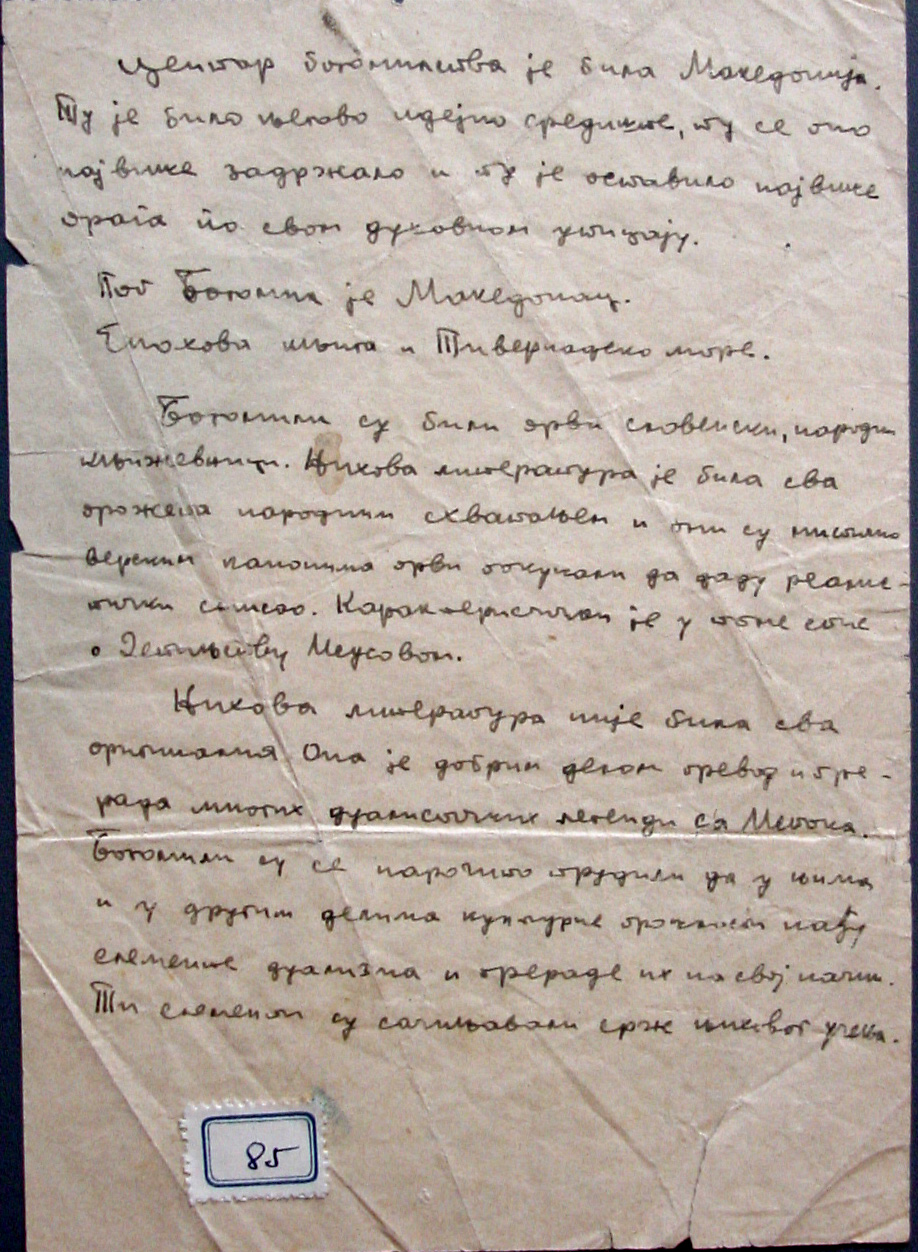 Центар богомилства је била Македонија.
Ту је било његово идејно средиште, ту се оно
највише задржало и ту је оставило највише
трага по свом духовном утицају.
Поп Богомил је Македонац.
Енохова књига и Тивериадско море.
Богомили су били први словенски, народни
књижевници. Њихова литература је била сва
прожета народним схватањем и они су
верским канонима први покушали да даду реалис-
тички смисао. Карактеристични је у томе спис
о Детињству Исусовом.
Њихова литература није била сва
оригинална Она је добрим делом превод и пре-
рада многих дуалистичких легенди са Истока.
Богомили су се нарочито трудили да у њима
и у другим делима културне прошлости нађу
елементе дуализма и прераде их на свој начин.
Ти елементи су сачињавали срж њиховог учења.
85